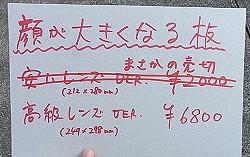 顔が大きくなる板
まさかの売切
安いレンズ VER. ¥2000
(212×280mm)
高級レンズ VER. ¥6800
(249×298mm)